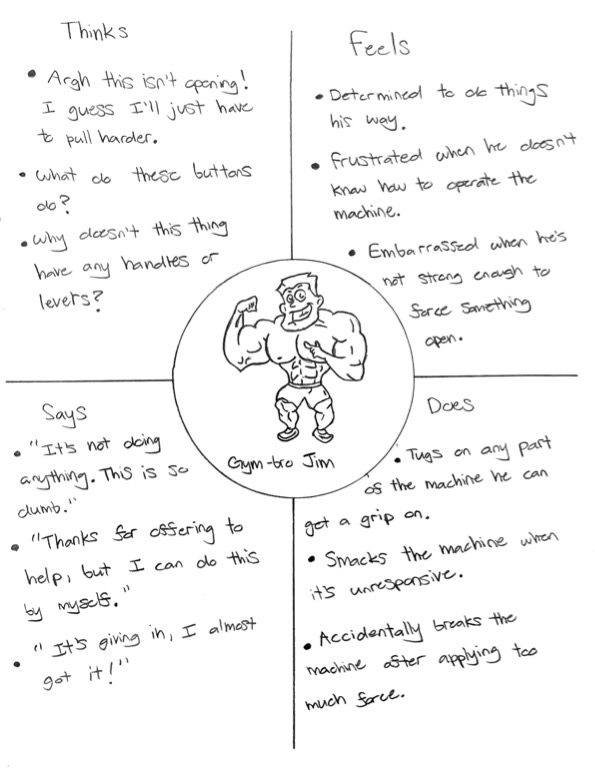 Thinks
• Argh this isn't opening!
I guess I'll just have
to pull harder.
• What do these buttons
do?
• Why doesn't this thing
have any handles or
levers?
Feels
• Determined to do things
his way.
• Frustrated when he doesn't
know how to operate the
machine.
• Embarrassed when he's
not strong enough to
force something
open.
Gym-bro Jim
Says
• "It's not doing
anything. This is so
dumb."
• "Thanks for offering to
help, but I can do this
by myself."
• "It's giving in, I almost
got it!"
Does
• Tugs on any part
of the machine he can
get a grip on.
• Smacks the machine when
it's unresponsive.
• Accidentally breaks the
machine after applying too
much force.